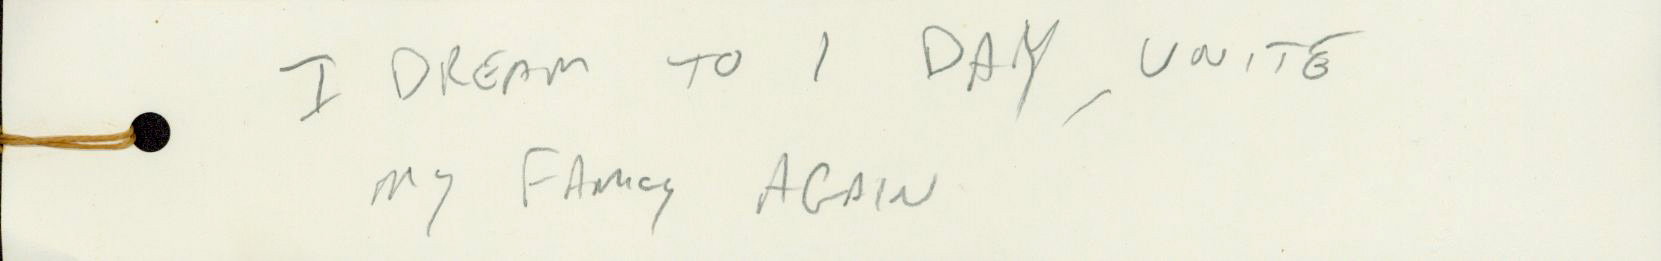 I DREAM TO 1 DAY, UNITE
MY FAMILY AGAIN